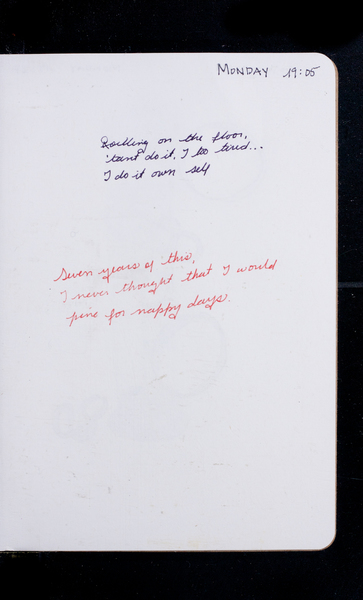 MONDAY 19:05
Rolling on the floor,
'tant do it, I too tired...
I do it own self
Seven years of this,
I never thought that I would
pine for nappy days.